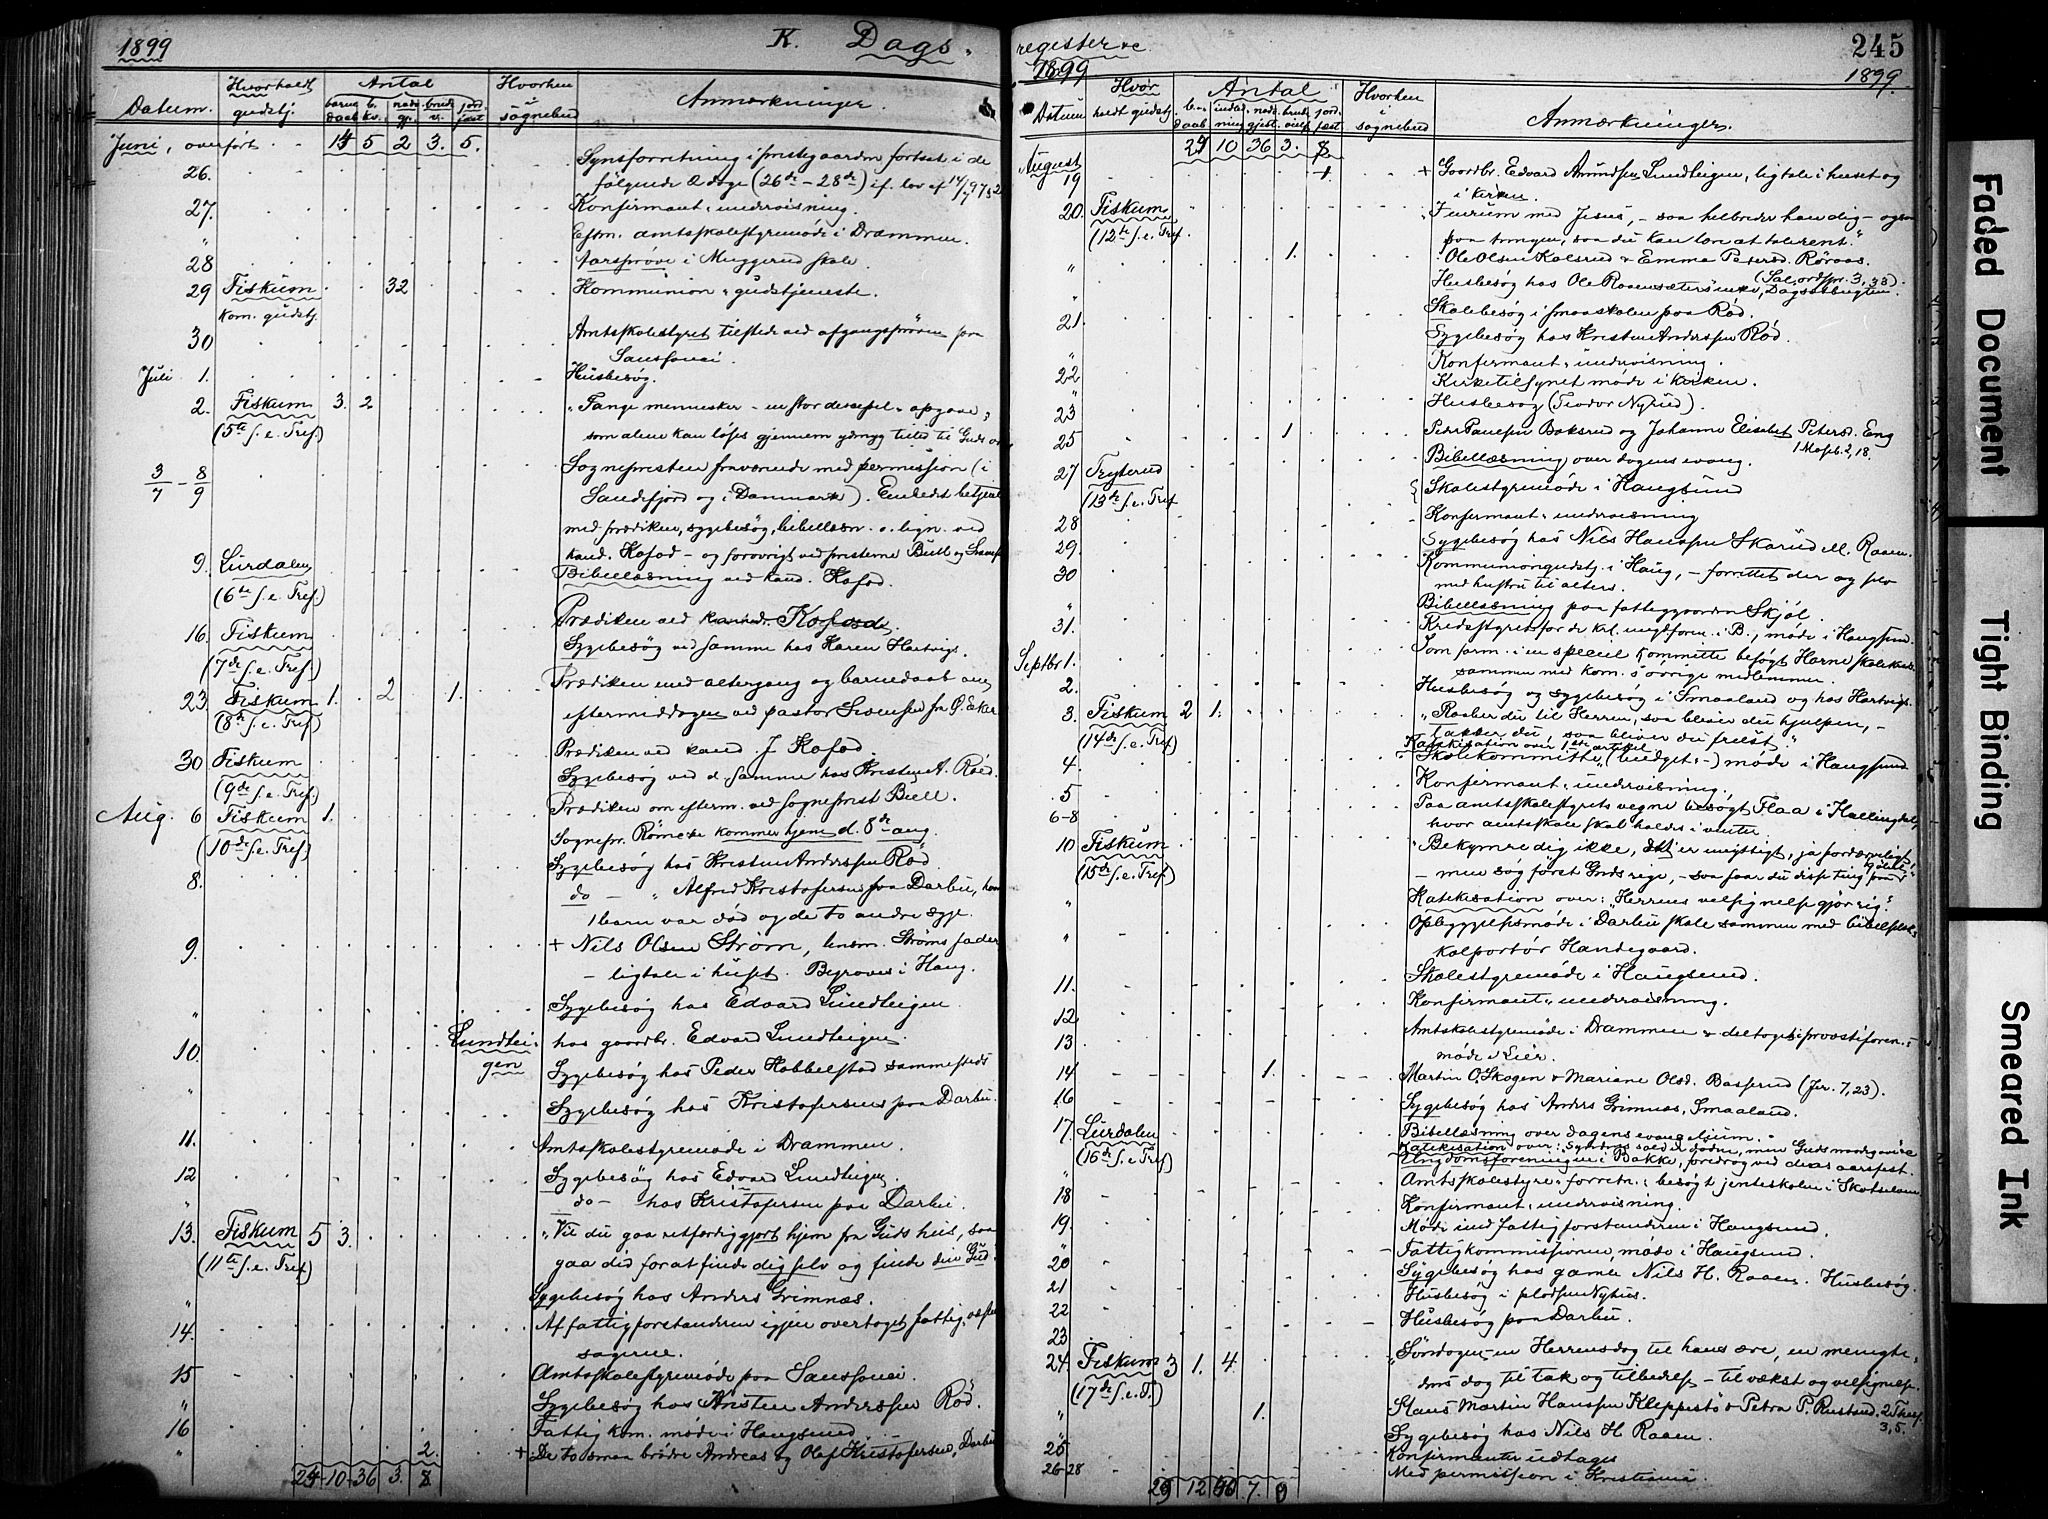 1899 K. Dags-
Datum. Hvor holdt gudstj. Antal Hvorhen i sognebud Anmærkninger.
barne daab b. kv. natv. gj. brude v. jord fæst
Juni, overført 5 2 3. 5.
26. Synsforretning i prestegaarden fortsat i de
følgende 2 dage (26de – 28de) if. lov af 14/7 97 § 2
27. Konfirmant-undervisning.
" Efterm. amtsskolestyremøde i Drammen.
28 Aarsprøve i Muggerud skole
29 Fiskum 32 Kommunion-gudstjeneste.
kom. gudstj.
30 Amtsskolestyret tilstede ved afgangsprøven paa
Sanssouci.
Juli 1. Husbesøg.
2. Fiskum 3. 2 "Fange mennesker – en stor opgave,
(5te s. e. Tref.) som alene kan løses gjennem ydmyg til Guds ord
3/7 – 8/9 Sognepresten fraværende med permission (i
Sandefjord og i Danmark). Embedet betjent
med prædiken, sygebesøg, bibellæsn. o. lign. ved
kand. Kofod – og forøvrigt ved presterne Bull og Svensen
9. Lurdalen Bibellæsning ved kand. Kofod.
(6te s. e. Tref.)
16. Fiskum Prædiken ved kand. Kofod.
(7de s. e. Tref.) Sygebesøg ved samme hos Karen Hartvigs.
23. Fiskum 1. 2 1. Prædiken med altergang og barnedaab om
(8de s. e. Tref.) eftermiddagen ved pastor Svensen fra Ø. Eker
30 Fiskum Prædiken ved kand. J. Kofod.
(9de s. e. Tref.) Sygebesøg ved d. samme hos Kristen A. Røed.
Aug. 6 Fiskum 1. Prædiken om efterm. ved sogneprest Bull.
(10de s. e. Tref.) Sognepr. Römcke kommer hjem d. 8de aug.
8. Sygebesøg hos Kristen Anderssen Rød
do – " Alfred Kristofersens paa Darbu, hvor
1 barn var død og de to andre syge.
9. + Nils Olsen Strøm, lensm. Strøms fader
– ligtale i huset. Begraves i Haug.
" Sygebesøg hos Edvard Lundteigen
10. Lundteigen hos gaardbr. Edvard Lundteigen
" Sygebesøg hos Peder Hobbelstad sammesteds
Sygebesøg hos Kristofersens paa Darbu.
11. Amtsskolestyremøde i Drammen.
12 Sygebesøg hos Edvard Lundteigen.
" do – hos Kristofersen paa Darbu.
13. Fiskum 5 3. "Vil du gaa retfærdiggjort hjem fra Guds hus, saa
(11te s. e. Tref.) gaa did for at finde dig selv og finde din Gud."
" Sygebesøg hos Anders Grimnæs.
14. Af fattigforstanderen igjen overtaget fattig-
sagerne.
15 Amtsskolestyremøde paa Sanssouci.
" Sygebesøg hos Kristen Anderssen Rød.
16 Fattigkom. møde i Haugsund
" 2. + De to smaa brødre Andreas og Olaf Kristofersen, Darbu
24 10 36 3. 8
register &c. 245
1899 1899.
Datum Hvor holdt gudstj. Antal Hvorhen i sognebud Anmærkninger.
August 24 10 36 3. 8
19 1. + Gaardbr. Edvard Amundsen Lundteigen, ligtale i huset og
i kirken.
20. Fiskum "I enrum med Jesus, – saa helbreder han dig – ogsaa
(12te s. e. Tref. paa tungen, saa du kan tale rent."
" 1. Ole Olsen Kolsrud & Emma Petersd. Røraas.
(Sal. ordspr. 3, 33).
" Husbesøg hos Ole Raaensæters enke,
21. Skolebesøg i smaaskolen paa Rød.
" Sygebesøg hos Kristen Anderssen Rød.
22 Konfirmant-undervisning.
" Kirketilsynet møde i kirken.
23 Husbesøg (Teodor Nyrud).
25 1 Peder Paulsen Baksrud og Johanne Elisebet Petersd. Eng
1 Moseb. 2, 18.
27 Tryterud Bibellæsning over dagens evang.
(13de s. e. Tref. Skolestyremøde i Haugsund
28 Konfirmant-undervisning
29. Sygebesøg hos Nils Hanssen Skarud M. Raaen.
30 Kommuniongudstj. i Haug, – forrettet der og selv
med hustru til alters.
" Bibellæsning paa fattiggaarden Skjøl.
31. Kredsstyret for de krl. ungdforen. i B., møde i Haugsund.
Septbr 1. Som form. i en speciel kommitte besøgt Horne skolekreds
sammen med kom.s øvrige medlemmer.
2. Husbesøg og sygebesøg i Smaaland og hos Hartvigs.
3. Fiskum 2 1. "Raaber du til Herren, saa bliver du hjulpen, –
(14de s. e. Tref) takker du, saa bliver du frelst."
Katekisation over 1ste artikel
4 Skolekommitte (budget-) møde i Haugsund
5 Konfirmant-undervisning.
6-8 Paa amtsskolestyrets vegne besøgt Flaa i Hallingdal,
hvor amtsskole skal holdes i vinter.
10 Fiskum "Bekymre dig ikke, det er unyttigt, ja fordærveligt,
(15de s. e. Tref) – men søg først Guds rige, – saa faar du disse ting
" Katekisation over: "Herrens velsignelse gjør rig."
" Opbyggelsesmøde i Darbu skole sammen med bibelselsk.
kolportør Handegaard.
11. Skolestyremøde i Haugsund.
12 Konfirmant-undervisning.
13 Amtsskolestyremøde i Drammen & deltoges i provstiforen.s
møde i Lier.
14 1. Martin O. Skogen & Mariane Olsd. Basserud (Jer. 7, 23).
16 Sygebesøg hos Anders Grimnæs, Smaaland.
17. Lurdalen Bibellæsning over dagens evangelium.
(16de s. e. Tref) Katekisation over: Syndens sold er døden, men Guds naadegave
" Ungdomsforeningen i Bakke, foredrag ved deres aarsfest.
18 Amtsskolestyre-forretn.: besøgt jenteskolen i Skotselven
19. Konfirmant-undervisning.
" Møde med fattigforstanderen i Haugsund.
20 Fattigkommissionen møde i Haugsund.
21 Sygebesøg hos gamle Nils H. Raaen. Husbesøg.
22 Husbesøg i pladsen Nyhus.
23 Husbesøg paa Darbu.
24 Fiskum 3 1. 4. "Søndagen – en Herrensdag til hans ære, en menighe-
(17de s. e. T.) dens dag til tak og tilbedelse – til vækst og velsignelse.
" 1. Claus Martin Hanssen Kleppestø & Petra P. Rustand. 2 Thess. 3, 5.
25 Sygebesøg hos Nils H. Raaen.
26-28 Konfirmanter udtages
Med permission i Kristiania.
29 12 40 7. 9
Faded Document
Tight Binding
Smeared Ink